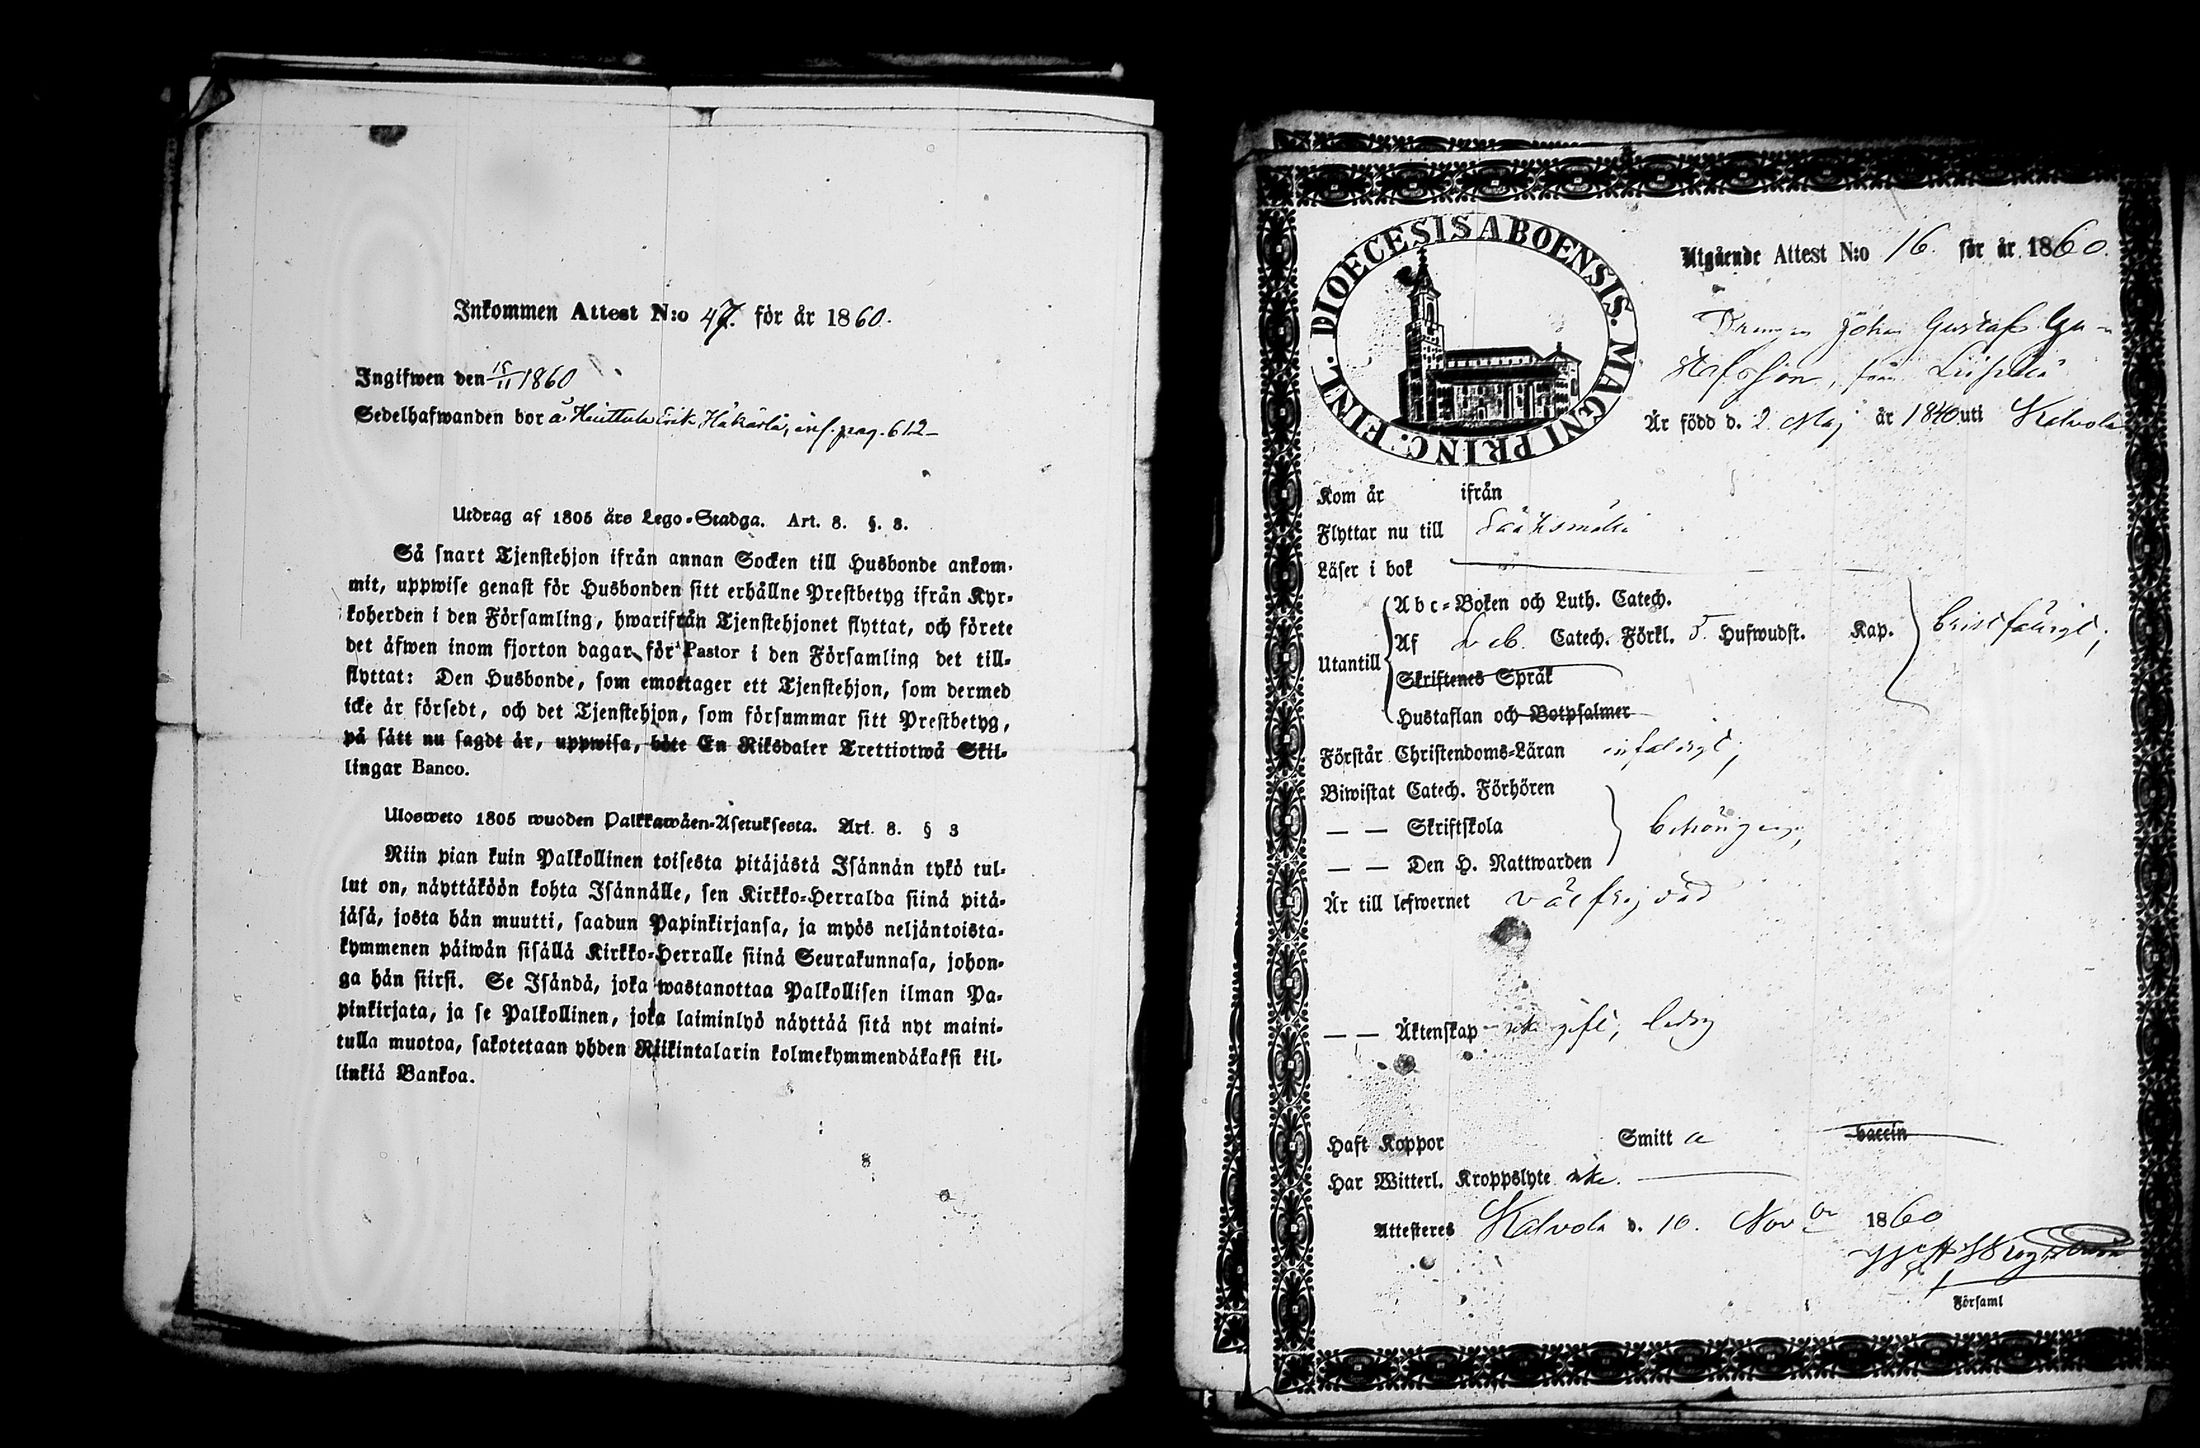 Inkommen Attest N:o 47. för år 1860.
Ingifwen den 15/11 1860
Sedelhafwanden bor å Huittula Erik Häkärlä, inf. pag. 612
Utdrag af 1805 års Lego-Stadga. Art. 8. §. 3.
Så snart Tjenstehjon ifrån annan Socken till Husbonde ankom-
mit, uppwise genast för Husbonden sitt erhållne Prestbetyg ifrån Kyr-
koherden i den Församling, hwarifrån Tjenstehjonet flyttat, och förete
det äfwen inom fjorton dagar för Pastor i den Församling det till-
flyttat: Den Husbonde, som emottager ett Tjenstehjon, som dermed
icke är försedt, och det Tjenstehjon, som försummar sitt Prestbetyg,
på sätt nu sagdt är, uppwisa, böte En Riksdaler Trettiotwå Skil-
lingar Banco.
Ulosweto 1805 wuoden Palkkawäen-Asetuksesta. Art. 8. § 3
Niin pian kuin Palkollinen toisesta pitäjästä Isännän tykö tul-
lut on, näyttäköön kohta Isännälle, sen Kirkko-Herralda siinä pitä-
jäsä, josta hän muutti, saadun Papinkirjansa, ja myös neljäntoista-
kymmenen päiwän sisällä Kirkko-Herralle siinä Seurakunnasa, johon-
ga hän siirsi. Se Isändä, joka wastanottaa Palkollisen ilman Pa-
pinkirjata, ja se Palkollinen, joka laiminlyö näyttää sitä nyt maini-
tulla muotoa, sakotetaan yhden Riikintalarin kolmekymmendäkaksi kil-
linkiä Bankoa.
DIOECESIS ABOENSIS. MAGNI PRINC: FINL.
Utgående Attest N:o 16. för år 1860.
Drengen Johan Gustaf Gu-
stafsson, från
Är född d. 2 Maj år 1840 uti Kalvola
Kom år ifrån
Flyttar nu till Sääksmäki
Läser i bok
Utantill
Abc-Boken och Luth. Catech.
Af Catech. Förkl. 5. Hufwudst. Kap. bristfäligt;
Skriftenes Språk
Hustaflan och Botpsalmer
Förstår Christendoms-Läran enfaldigt;
Biwistat Catech. Förhören
— — Skriftskola behörigen,
— — Den H. Nattwarden
Är till lefwernet välfrejdad
— — Äktenskap icke gift, ledig
Haft Koppor Smitt a vaccin
Har Witterl. Kroppslyte icke.
Attesteres Kalvola d. 10. Nov br 1860
Församl